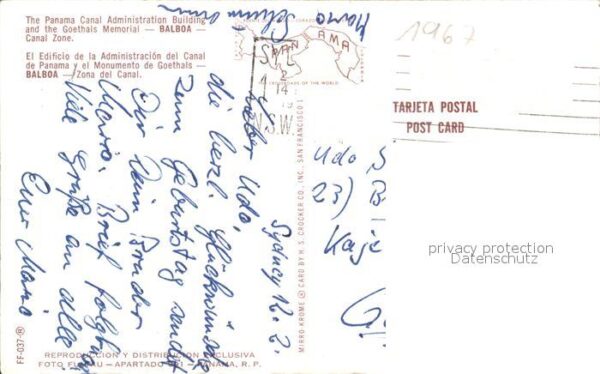 The Panama Canal Administration Building
and the Goethals Memorial — BALBOA —
Canal Zone.
El Edificio de la Administración del Canal
de Panama y el Monumento de Goethals —
BALBOA — Zona del Canal.
PANAMA
CROSSROADS OF THE WORLD
1967
TARJETA POSTAL
POST CARD
N.S.W.
Sydney 12. 2.
Lieber Udo,
die herzl. Glückwünsche
zum Geburtstag sendet
Dir Dein Bruder
Mario. Brief folgt
Viele Grüße an alle
Euer Mario
Mario
Udo S
23)
MIRRO-KROME ® CARD BY H. S. CROCKER CO., INC. SAN FRANCISCO
privacy protection
Datenschutz
FF-037-®
REPRODUCCION Y DISTRIBUCION EXCLUSIVA
FOTO APARTADO PANAMA, R. P.